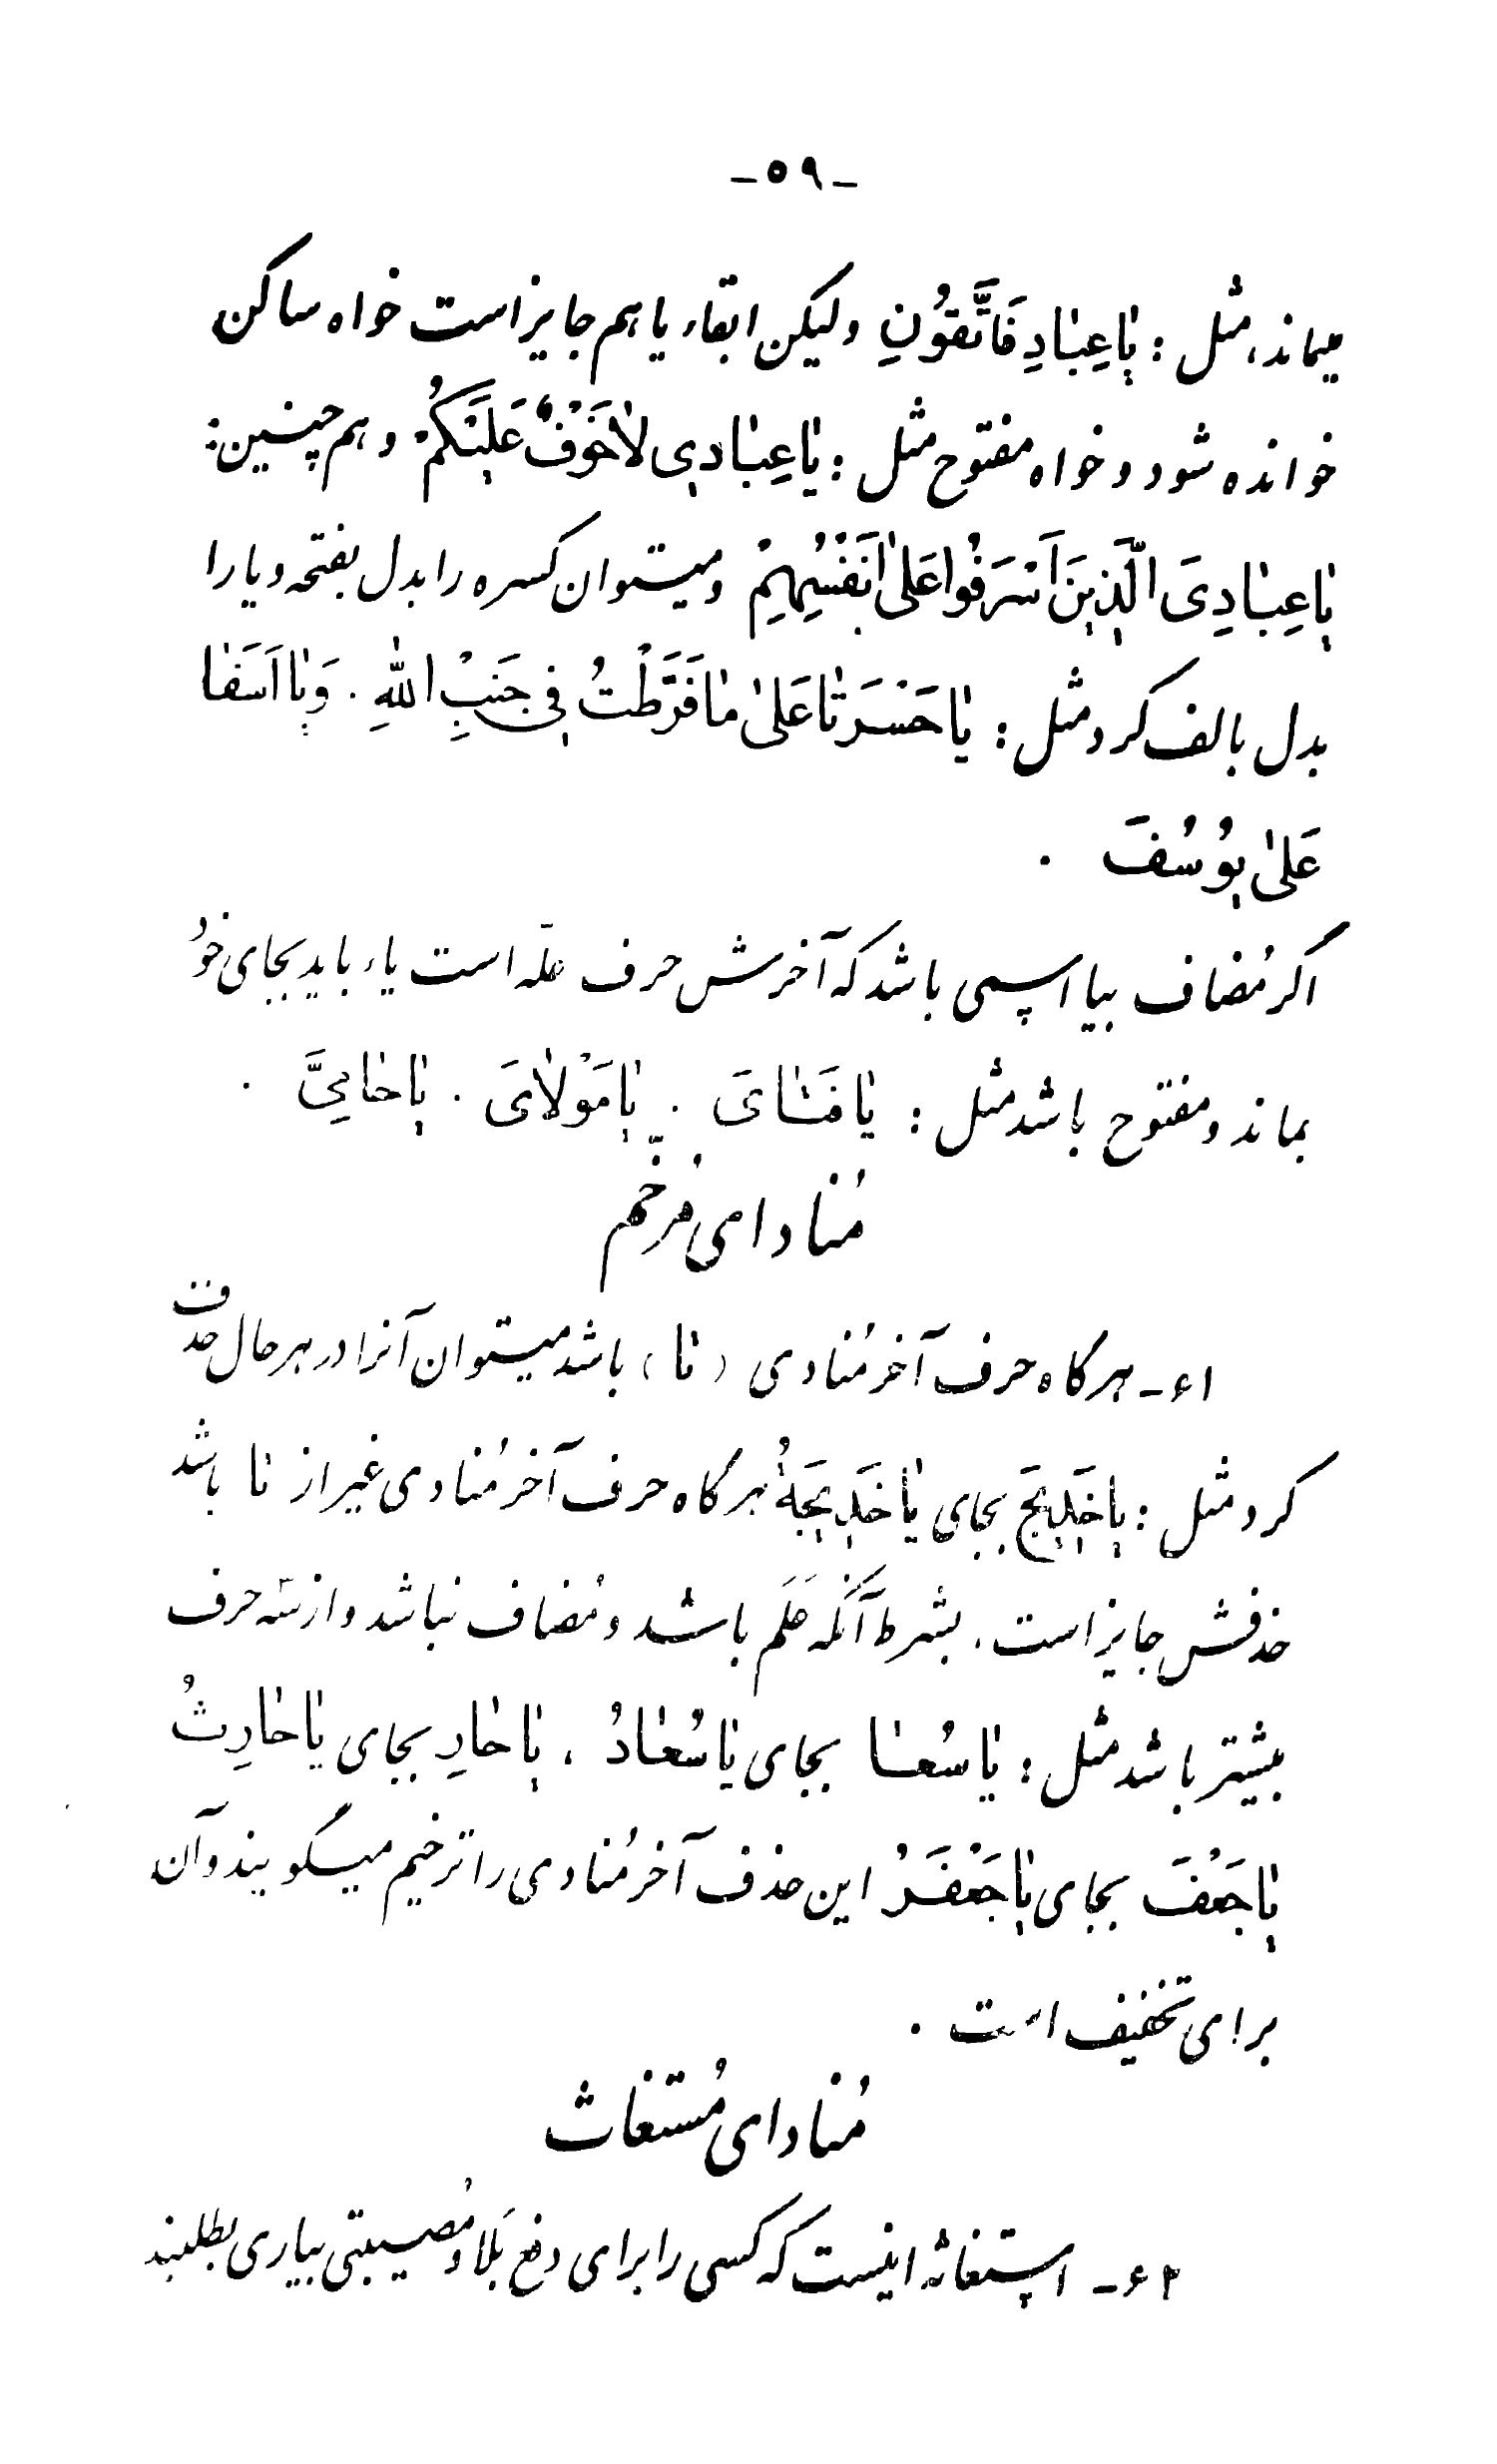 -۵۹-
میماند، مثل : یٰاعِبٰادِ فَاتَّقُونِ ولیکن ابقاء یا هم جایز است خواه ساکن
خوانده شود و خواه مفتوح مثل : یٰاعِبٰادی لٰاخَوْفٌ عَلَیْکُمْ و هم چنین :
یٰاعِبٰادِیَ الَّذینَ اَسْرَفُوا عَلیٰ اَنْفُسِهِمْ و میتوان کسره را بدل بفتحه و یا را
بدل بالف کرد مثل : یٰاحَسْرَتٰا عَلیٰ مٰافَرَّطْتُ فی جَنْبِ اللهِ . وَ یٰا اَسَفٰا
عَلیٰ یُوسُفَ .
اگر مُضاف بیا اسمی باشد که آخرش حرف علّه است یاء باید بجای خُود
بماند و مفتوح باشد مثل : یٰافَتٰایَ . یٰامَوْلٰایَ . یٰاحٰامِیَّ .
مُنادای مُرَخّم
۶۱- هرگاه حرف آخر مُنادی (تا) باشد میتوان آنرا در هر حال حذف
کرد مثل : یٰاخَدیجَ بجای یٰاخَدیجَةُ هرگاه حرف آخر مُنادی غیر از تا باشد
حذفش جایز است، بشرط آنکه عَلَم باشد و مُضاف نباشد و از سَه حرف
بیشتر باشد مثل : یٰاسُعٰا بجای یٰاسُعٰادُ ، یٰاحٰارِ بجای یٰاحٰارِثُ
یٰاجَعْفَ بجای یٰاجَعْفَرُ این حذف آخر مُنادی را ترخیم میگویند و آن
برای تخفیف است .
مُنادای مُستغاث
۶۲- استغاثه اینست که کسی را برای دفع بَلا و مُصیبتی بیاری بطلبند